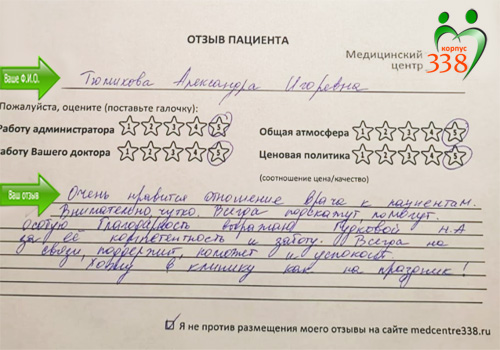 ОТЗЫВ ПАЦИЕНТА
корпус
Медицинский центр 338
Ваше Ф.И.О. Тюликова Александра Игоревна
Пожалуйста, оцените (поставьте галочку):
Работу администратора 1 2 3 4 5 Общая атмосфера 1 2 3 4 5
Работу Вашего доктора 1 2 3 4 5 Ценовая политика 1 2 3 4 5
(соотношение цена/качество)
Ваш отзыв Очень нравится отношение врача к пациентам.
Внимательно, чутко. Всегда подскажут, помогут.
Особую благодарность выражаю Гудковой Н.А
за её компетентность и заботу. Всегда на
связи, поддержит, поможет и успокоит.
Хожу в клинику как на праздник!
Я не против размещения моего отзывы на сайте medcentre338.ru